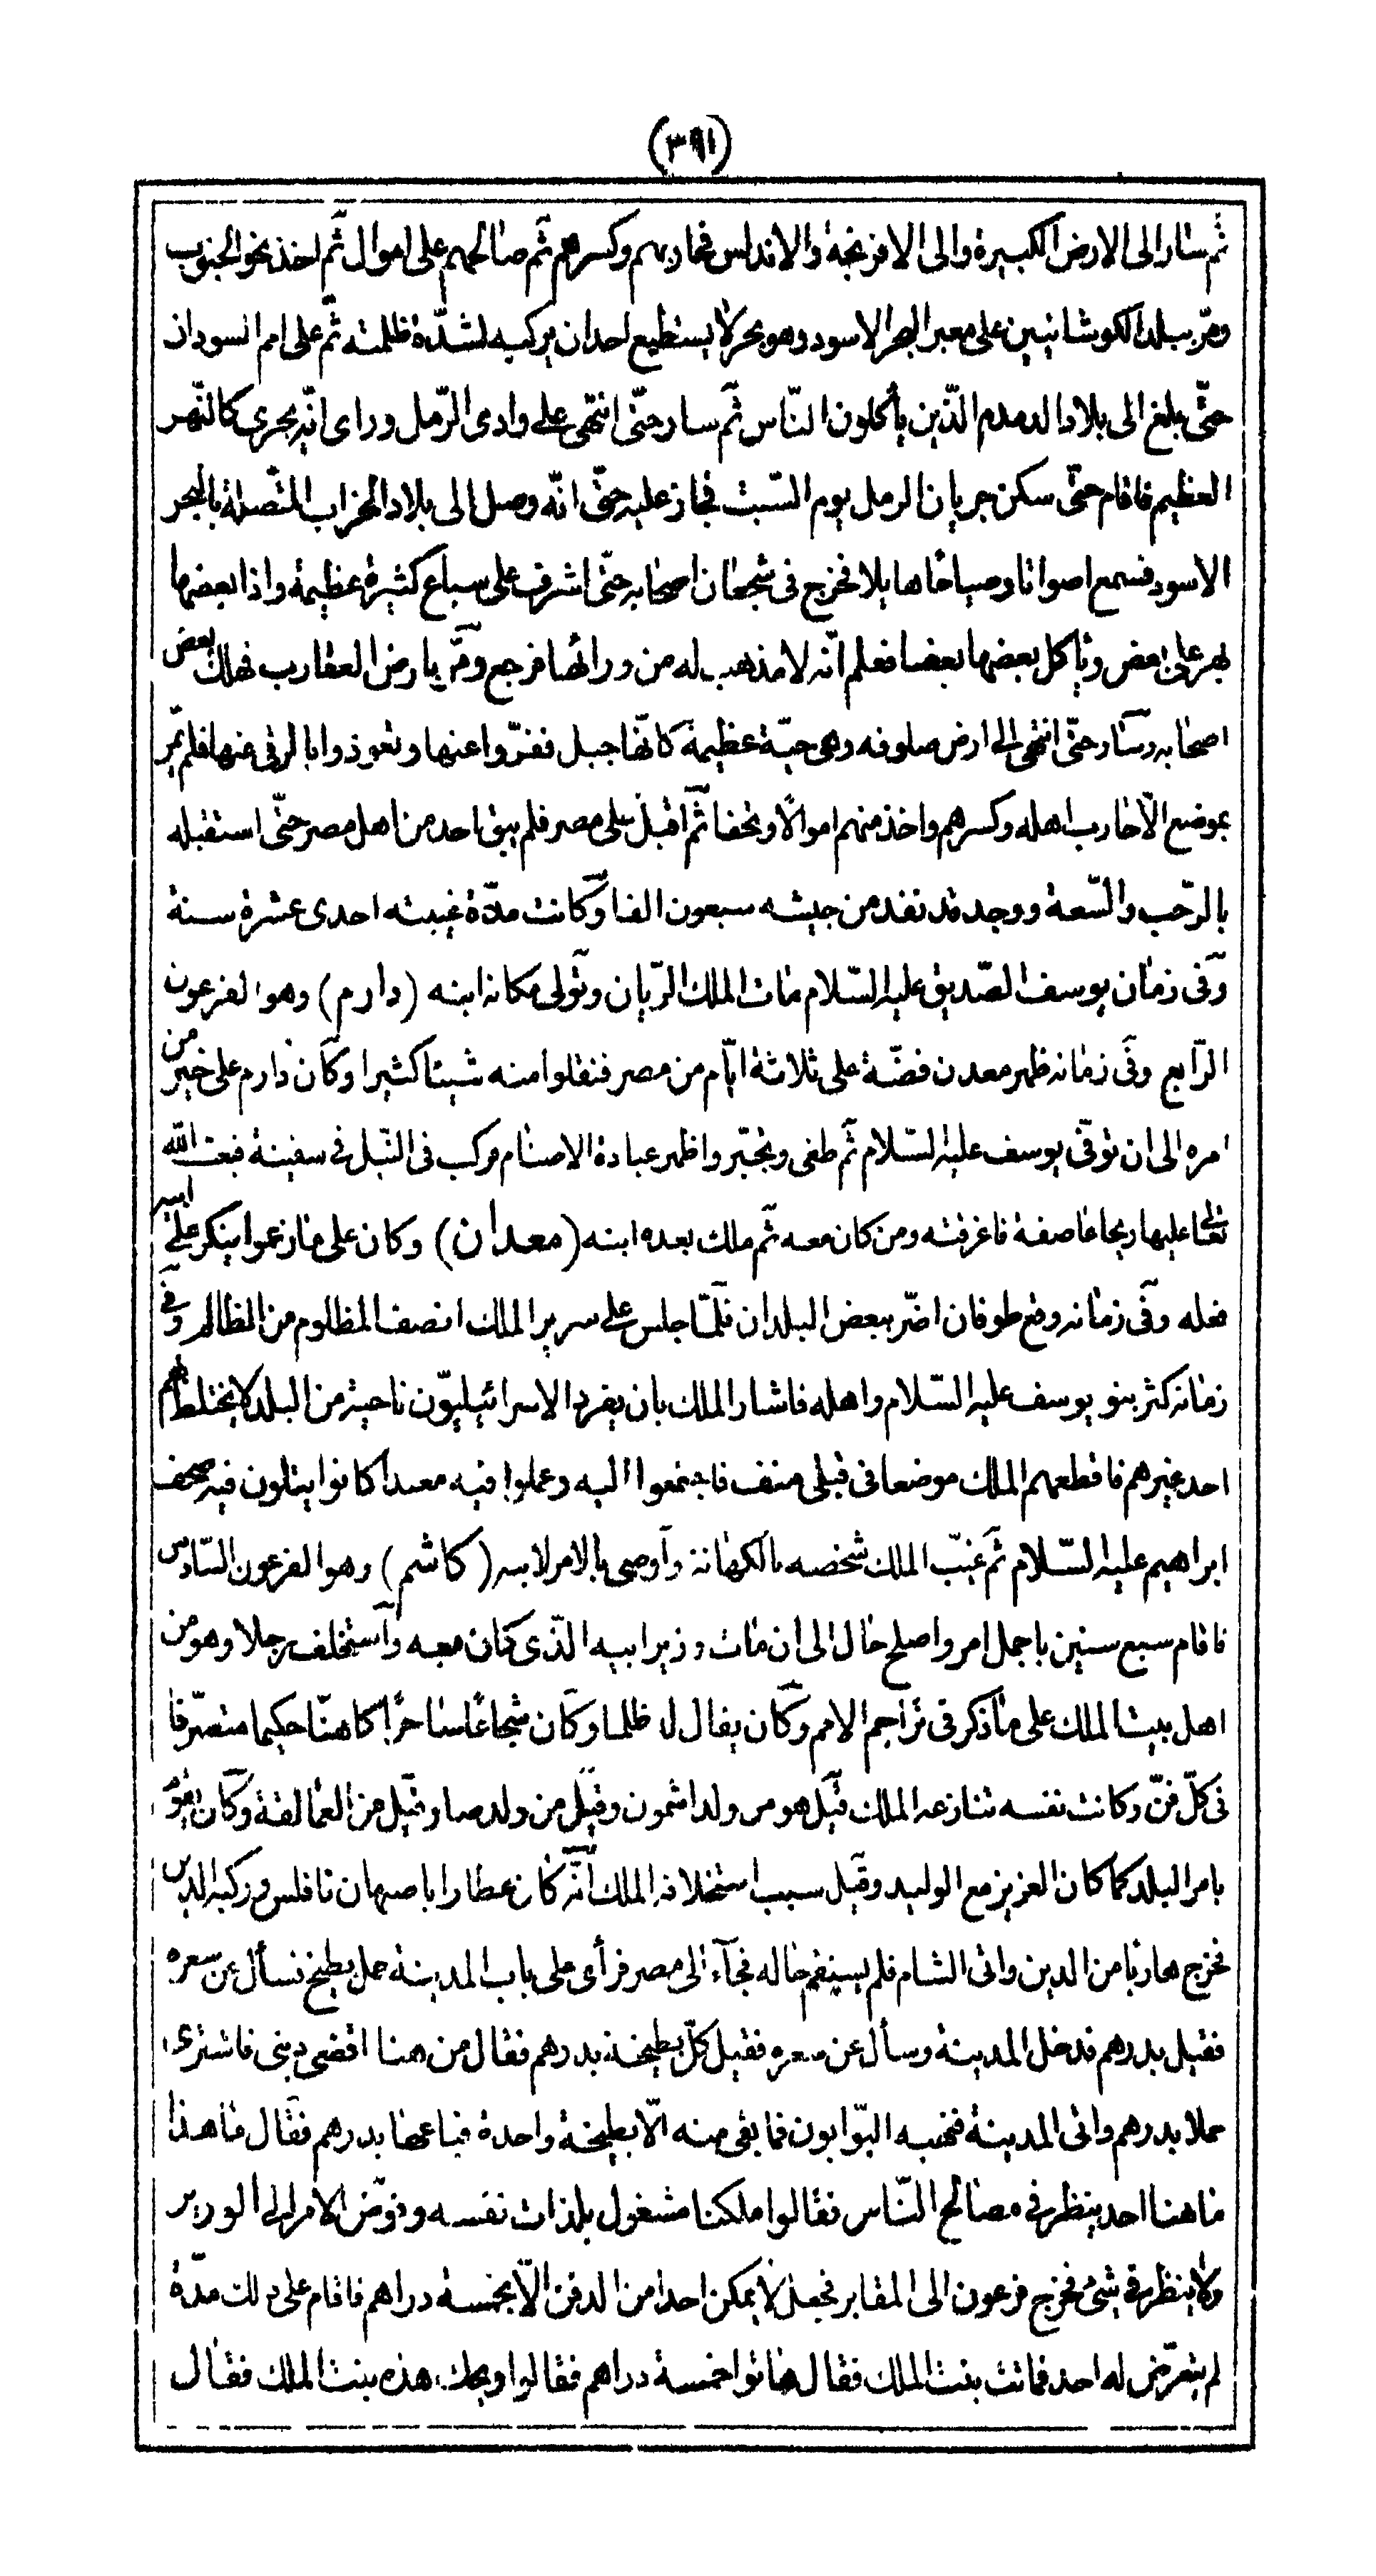 (٣٩١)
ثم سار الى الارض الكبيرة والى الافرنجة والاندلس فحاربهم وكسرهم ثم صالحهم على اموال ثم اخذ نحو الجنوب
ومر ببلد الكوشانيين على معبر البحر الاسود وهو بحر لا يستطيع احد ان يركبه لشدة ظلمته ثم على امم السودان
حتى بلغ الى بلاد الدمدم الذين يأكلون الناس ثم سار حتى انتهى على وادى الرمل وراى انه يجرى كالنهر
العظيم فاقام حتى سكن جريان الرمل يوم السبت فجاز عليه حتى انه وصل الى بلاد الخراب المتصلة بالبحر
الاسود فسمع اصواتا وصياحا هايلا فخرج فى شجعان اصحابه حتى اشرف على سباع كثيرة عظيمة واذا بعضها
يهر على بعض ويأكل بعضها بعضا فعلم انه لا مذهب له من ورائها فرجع ومر بارض العقارب فهلك بعض
اصحابه وسار حتى انتهى الى ارض سلوفه وهى حية عظيمة كانها جبل ففروا عنها وتعوذوا بالرقى عنها فلم يمر
بموضع الا حارب اهله وكسرهم واخذ منهم اموالا وتحفا ثم اقبل على مصر فلم يبق احد من اهل مصر حتى استقبله
بالرحب والسعة ووجد قد نفد من جيشه سبعون الفا وكانت مدة غيبته احدى عشرة سنة
وفى زمان يوسف الصديق عليه السلام مات الملك الريان وتولى مكانه ابنه (دارم) وهو الفرعون
الرابع وفى زمانه ظهر معدن فضة على ثلاثة ايام من مصر فنقلوا منه شيئا كثيرا وكان دارم على خير من
امره الى ان توفى يوسف عليه السلام ثم طغى وتجبر واظهر عبادة الاصنام فركب فى النيل فى سفينة فبعث الله
تعالى عليها ريحا عاصفة فاغرقته ومن كان معه ثم ملك بعده ابنه (معدان) وكان على ما زعموا ينكر على ابيه
فعله وفى زمانه وقع طوفان اضر ببعض البلدان فلما جلس على سرير الملك انصف المظلوم من الظالم وفى
زمانه كثر بنو يوسف عليه السلام واهله فاشار الملك بان يفرد الاسرائيليون ناحية من البلد لا يختلط بهم
احد غيرهم فاقطعهم الملك موضعا فى قبلى منف فاجتمعوا اليه وعملوا فيه معبدا كانوا يتلون فيه صحف
ابراهيم عليه السلام ثم غيب الملك شخصه بالكهانة واوصى بالامر لابنه (كاشم) وهو الفرعون السادس
فاقام سبع سنين باجمل امر واصلح حال الى ان مات وزير ابيه الذى كان معه واستخلف رجلا وهو من
اهل بيت الملك على ما ذكر فى تراجم الامم وكان يقال له ظلما وكان شجاعا ساحرا كاهنا حكيما متصرفا
فى كل فن وكانت نفسه تنازعه الملك قيل هو من ولد اشمون وقيل من ولد صا وقيل من العمالقة وكان يقوم
بامر البلد كما كان العزيز مع الوليد وقيل سبب استخلافه الملك انه كان عطارا باصبهان فافلس وركبه الدين
فخرج هاربا من الدين واتى الشام فلم يستقم حاله فجآء الى مصر فرأى على باب المدينة حمل بطيخ فسأل عن سعره
فقيل بدرهم فدخل المدينة وسأل عن سعره فقيل كل بطيخة بدرهم فقال من هنا اقضى دينى فاشترى
حملا بدرهم واتى المدينة فنهبه البوابون فما بقى منه الا بطيخة واحدة فباعها بدرهم فقال ما هذا
ما هنا احد ينظر فى مصالح الناس فقالوا ملكنا مشغول بلذات نفسه وفوض الامر الى الوزير
ولا ينظر فى شئ فخرج فرعون الى المقابر فجعل لا يمكن احدا من الدفن الا بخمسة دراهم فاقام على ذلك مدة
لم يتعرض له احد فماتت بنت الملك فقال هاتوا خمسة دراهم فقالوا ويحك هذه بنت الملك فقال